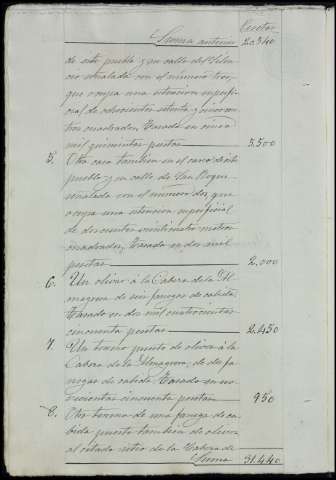 Pesetas
Suma anterior 20.540
de este pueblo y su calle del Silen-
cio señalada con el número tres,
que ocupa una estencion superfi-
cial de ochocientos setenta y nueve me-
tros cuadrados, tasada en cinco
mil quinientas pesetas 5.500
5. Otra casa tambien en el casco de este
pueblo y su calle de San Roque
señalada con el número dos, que
ocupa una estencion superficial
de doscientos veinticuatro metros
cuadrados, tasada en dos mil
pesetas 2.000
6. Un olivar á la Cabeza de la Al-
magrera de seis fanegas de cabida,
tasado en dos mil cuatrocientas
cincuenta pesetas 2.450
7. Un terreno puesto de olivar á la
Cabeza de la Almagrera, de dos fa-
negas de cabida tasado en no-
vecientas cincuenta pesetas 950
8. Otro terreno de una fanega de ca-
bida puesto tambien de olivar
al estado sitio de la Cabeza de
Suma 31.440